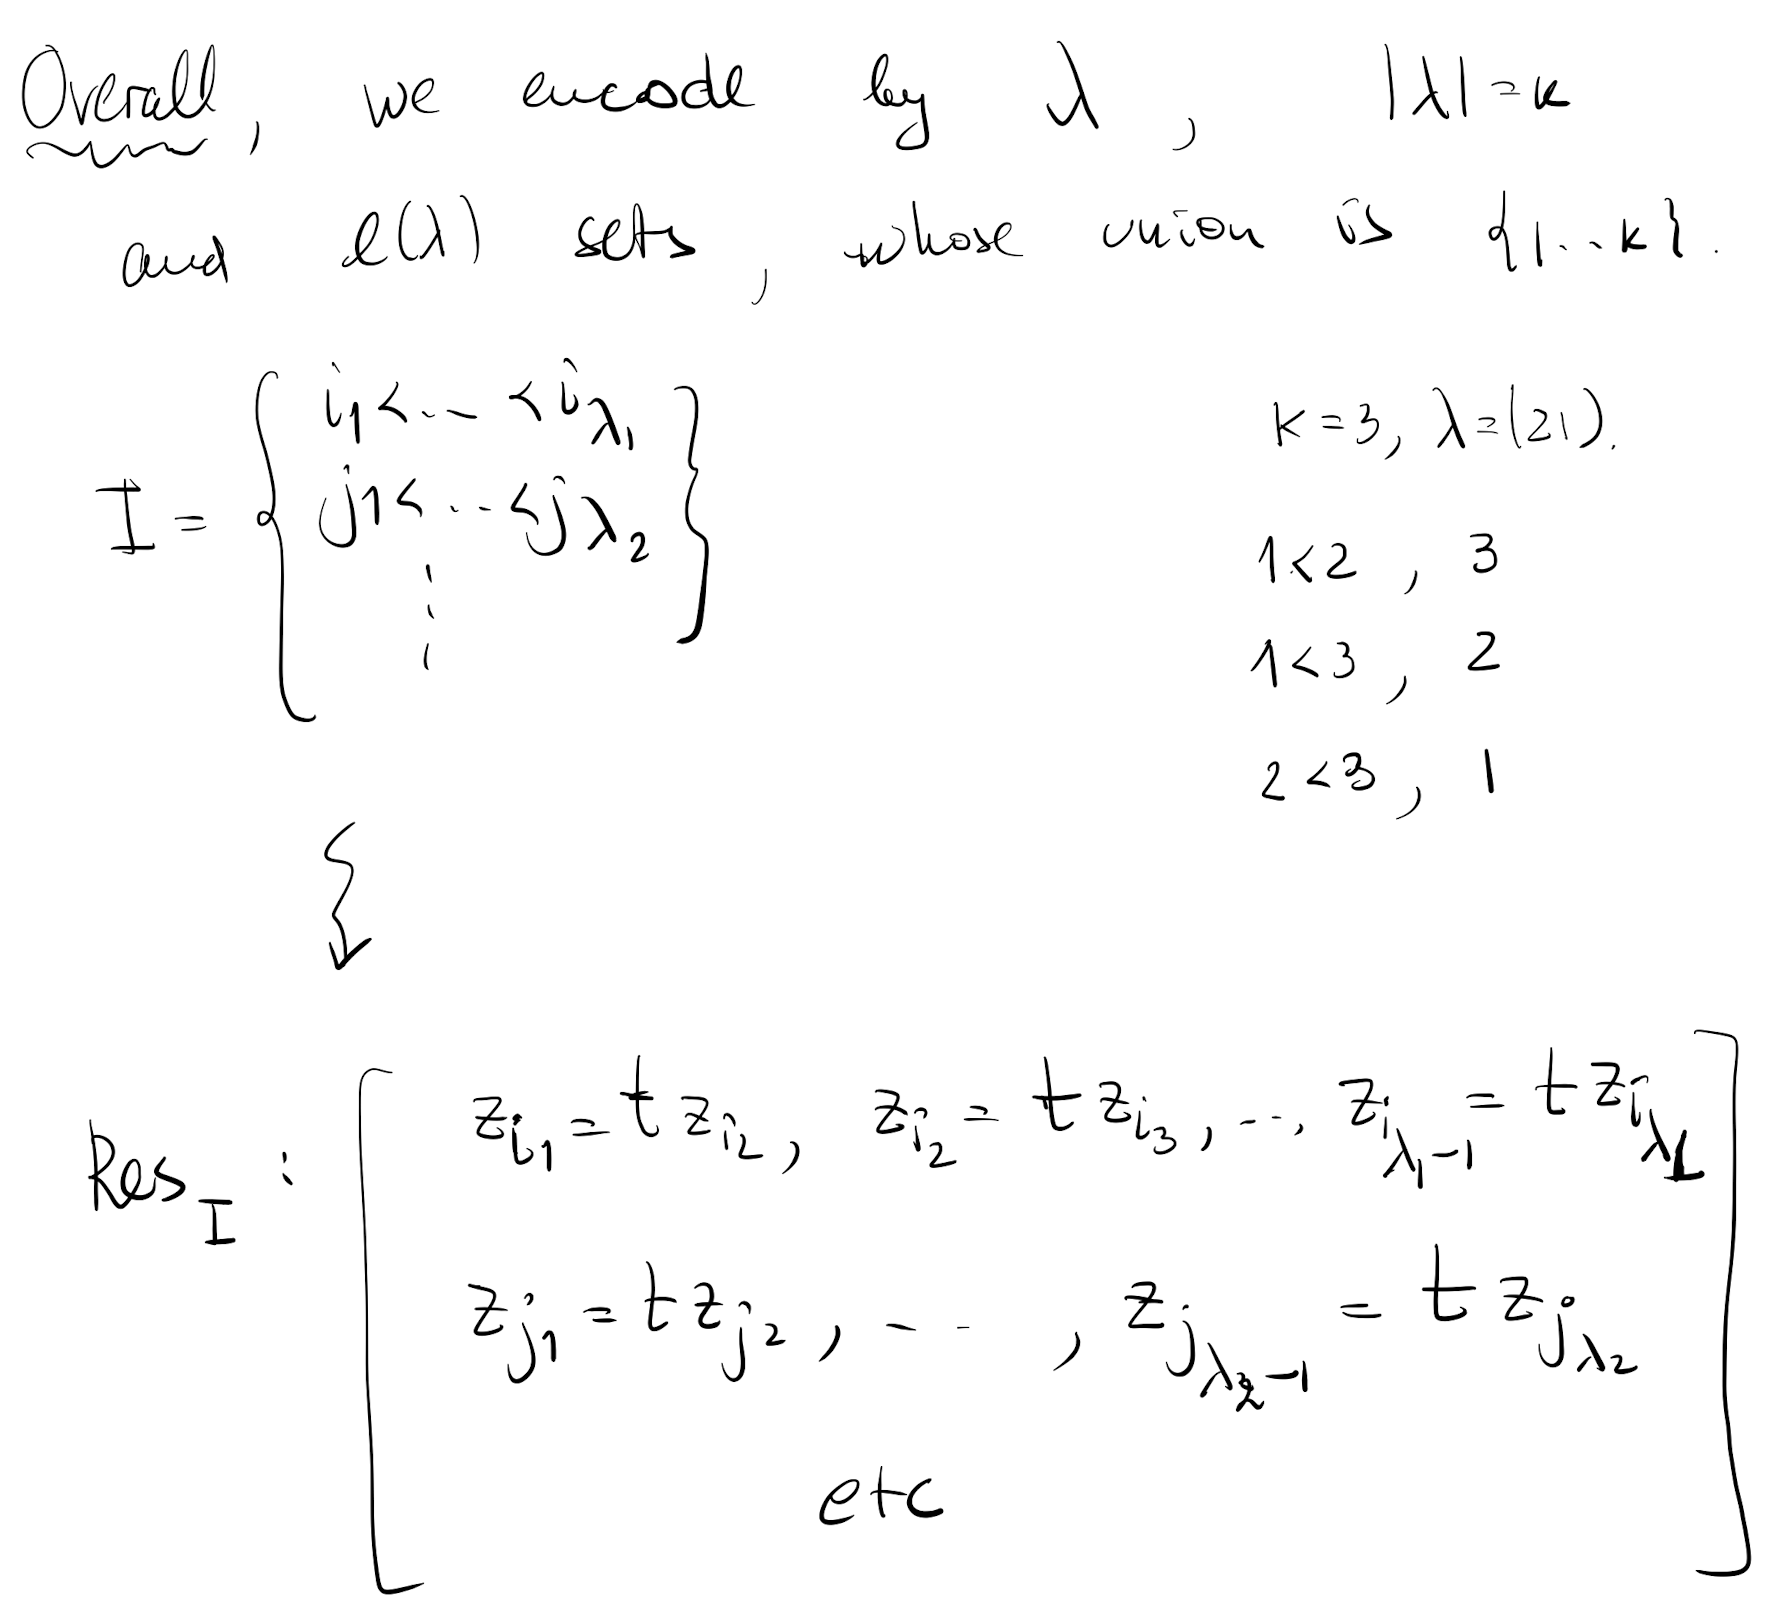 Overall, we encode by λ, |λ|=k
and ℓ(λ) sets, whose union is {1..k}.
I = { i₁<...<i_{λ₁}
j₁<...<j_{λ₂}
⋮ }
k=3, λ=(21).
1<2, 3
1<3, 2
2<3, 1
Res_I : [ z_{i₁}=t z_{i₂}, z_{i₂}=t z_{i₃}, ..., z_{i_{λ₁-1}}=t z_{i_{λ₁}}
z_{j₁}=t z_{j₂}, ..., z_{j_{λ₂-1}}=t z_{j_{λ₂}}
etc ]